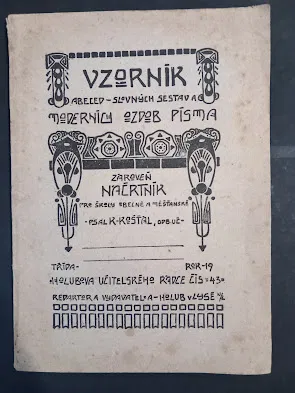 VZORNÍK
ABECED-SLOVNÝCH SESTAV A
MODERNÍCH OZDOB PÍSMA
ZÁROVEŇ
NÁČRTNÍK
PRO ŠKOLY OBECNÉ A MĚŠŤANSKÉ
-PSAL K-KOŠŤÁL, ODB. UČ-
TŘÍDA- ROK-19
HOLUBOVA UČITELSKÉHO RÁDCE ČÍS 43
REDAKTOR A VYDAVATEL-A-HOLUB V LYSÉ N/L